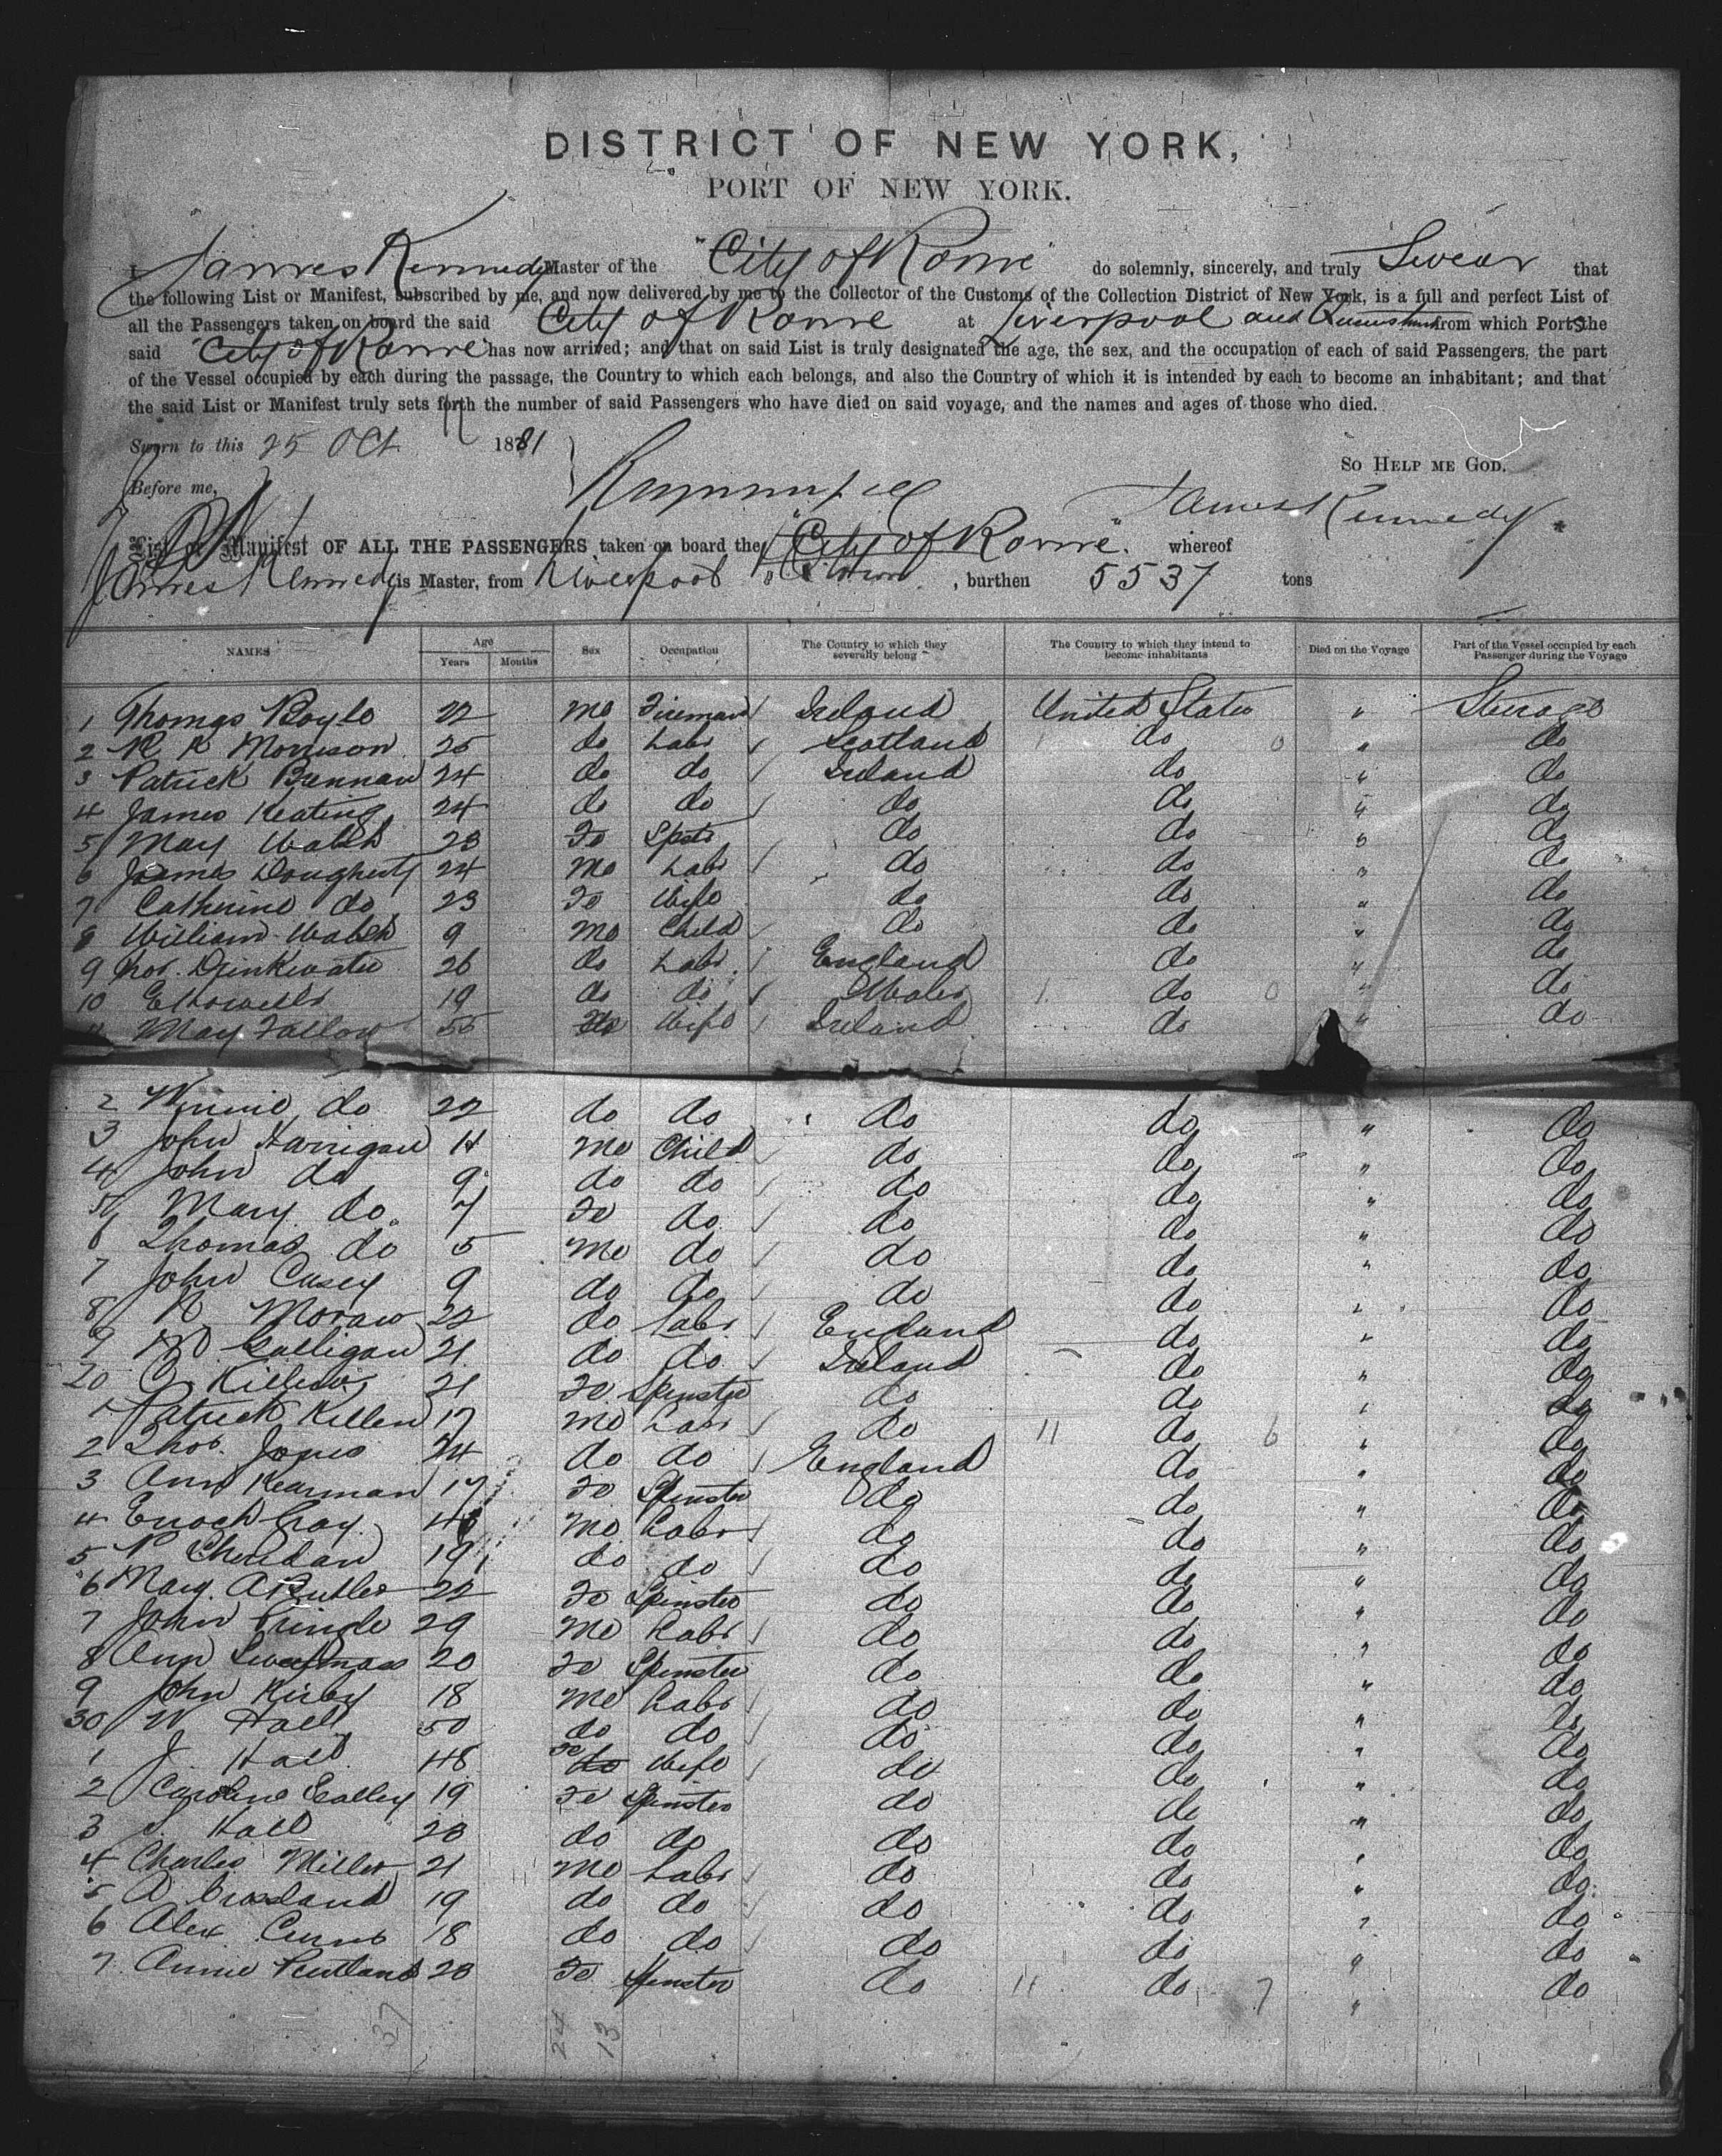 DISTRICT OF NEW YORK,
PORT OF NEW YORK.
I James Kennedy Master of the "City of Rome" do solemnly, sincerely, and truly Swear that
the following List or Manifest, subscribed by me, and now delivered by me to the Collector of the Customs of the Collection District of New York, is a full and perfect List of
all the Passengers taken on board the said City of Rome at Liverpool and from which Ports the
said "City of Rome" has now arrived; and that on said List is truly designated the age, the sex, and the occupation of each of said Passengers, the part
of the Vessel occupied by each during the passage, the Country to which each belongs, and also the Country of which it is intended by each to become an inhabitant; and that
the said List or Manifest truly sets forth the number of said Passengers who have died on said voyage, and the names and ages of those who died.
Sworn to this 25 Oct 1881
So Help me God.
Before me,
James Kennedy
List or Manifest OF ALL THE PASSENGERS taken on board the "City of Rome" whereof
James Kennedy is Master, from Liverpool , burthen 5537 tons
NAMES Age Years Months Sex Occupation The Country to which they severally belong The Country to which they intend to become inhabitants Died on the Voyage Part of the Vessel occupied by each Passenger during the Voyage
1 Thomas Boyle 22 Ma Fireman Ireland United States " Steerage
2 R K Morrison 25 do Labr Scotland do " do
3 Patrick Bannan 24 do do Ireland do " do
4 James Keating 24 do do do do " do
5 May Walsh 23 Fe Spstr do do " do
6 James Dougherty 24 Ma Labr do do " do
7 Catherine do 23 Fe Wife do do " do
8 William Walsh 9 Ma Child do do " do
9 Thos. Drinkwater 26 do Labr England do " do
10 E Howells 19 do do Wales do " do
11 May Fallon 55 Fe Wife Ireland do " do
2 Winnie do 22 do do do do " do
3 John Harrigan 11 Ma Child do do " do
4 John do 9 do do do do " do
5 Mary do 7 Fe do do do " do
6 Thomas do 5 Ma do do do " do
7 John Casey 9 do do do do " do
8 R Moran 22 do Labr England do " do
9 Galligan 21 do do Ireland do " do
20 C Killen 21 Fe Spinster do do " do
1 Patrick Killen 17 Ma Labr do do " do
2 Thos. Jones 24 do do England do " do
3 Ann Kearman 17 Fe Spinster do do " do
4 Enoch Gray Ma Labr do do " do
5 Sheridan 19 do do do do " do
6 Mary A Butler 22 Fe Spinster do do " do
7 John Pringle 29 Ma Labr do do " do
8 Ann 20 Fe Spinster do do " do
9 John Kirby 18 Ma Labr do do " do
30 W Hall 50 do do do do " do
1 J Hall 48 Fe Wife do do " do
2 Caroline Galley 19 Fe Spinster do do " do
3 S. Hall 23 do do do do " do
4 Charles Miller 21 Ma Labr do do " do
5 A Crossland 19 do do do do " do
6 Alex 18 do do do do " do
7 Annie Pentland 20 Fe Spinster do do " do
37 24 13